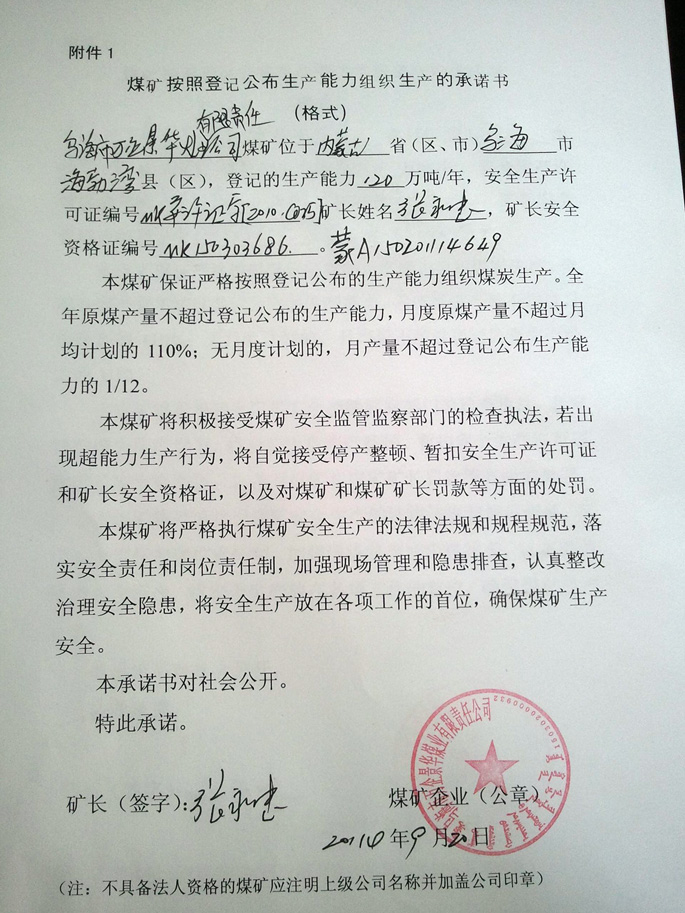 附件 1
煤矿按照登记公布生产能力组织生产的承诺书
(格式)
有限责任
乌海市万企景华煤业公司煤矿位于内蒙古省(区、市)乌海市
海勃湾县(区),登记的生产能力120万吨/年,安全生产许
可证编号 矿长姓名张永忠,矿长安全
资格证编号MK150303686。蒙A150201114649
本煤矿保证严格按照登记公布的生产能力组织煤炭生产。全
年原煤产量不超过登记公布的生产能力,月度原煤产量不超过月
均计划的 110%;无月度计划的,月产量不超过登记公布生产能
力的 1/12。
本煤矿将积极接受煤矿安全监管监察部门的检查执法,若出
现超能力生产行为,将自觉接受停产整顿、暂扣安全生产许可证
和矿长安全资格证,以及对煤矿和煤矿矿长罚款等方面的处罚。
本煤矿将严格执行煤矿安全生产的法律法规和规程规范,落
实安全责任和岗位责任制,加强现场管理和隐患排查,认真整改
治理安全隐患,将安全生产放在各项工作的首位,确保煤矿生产
安全。
本承诺书对社会公开。
特此承诺。
矿长(签字):张永忠
煤矿企业(公章)
2014年9月20日
企景华煤业有限责任公司
1503020000932
(注:不具备法人资格的煤矿应注明上级公司名称并加盖公司印章)